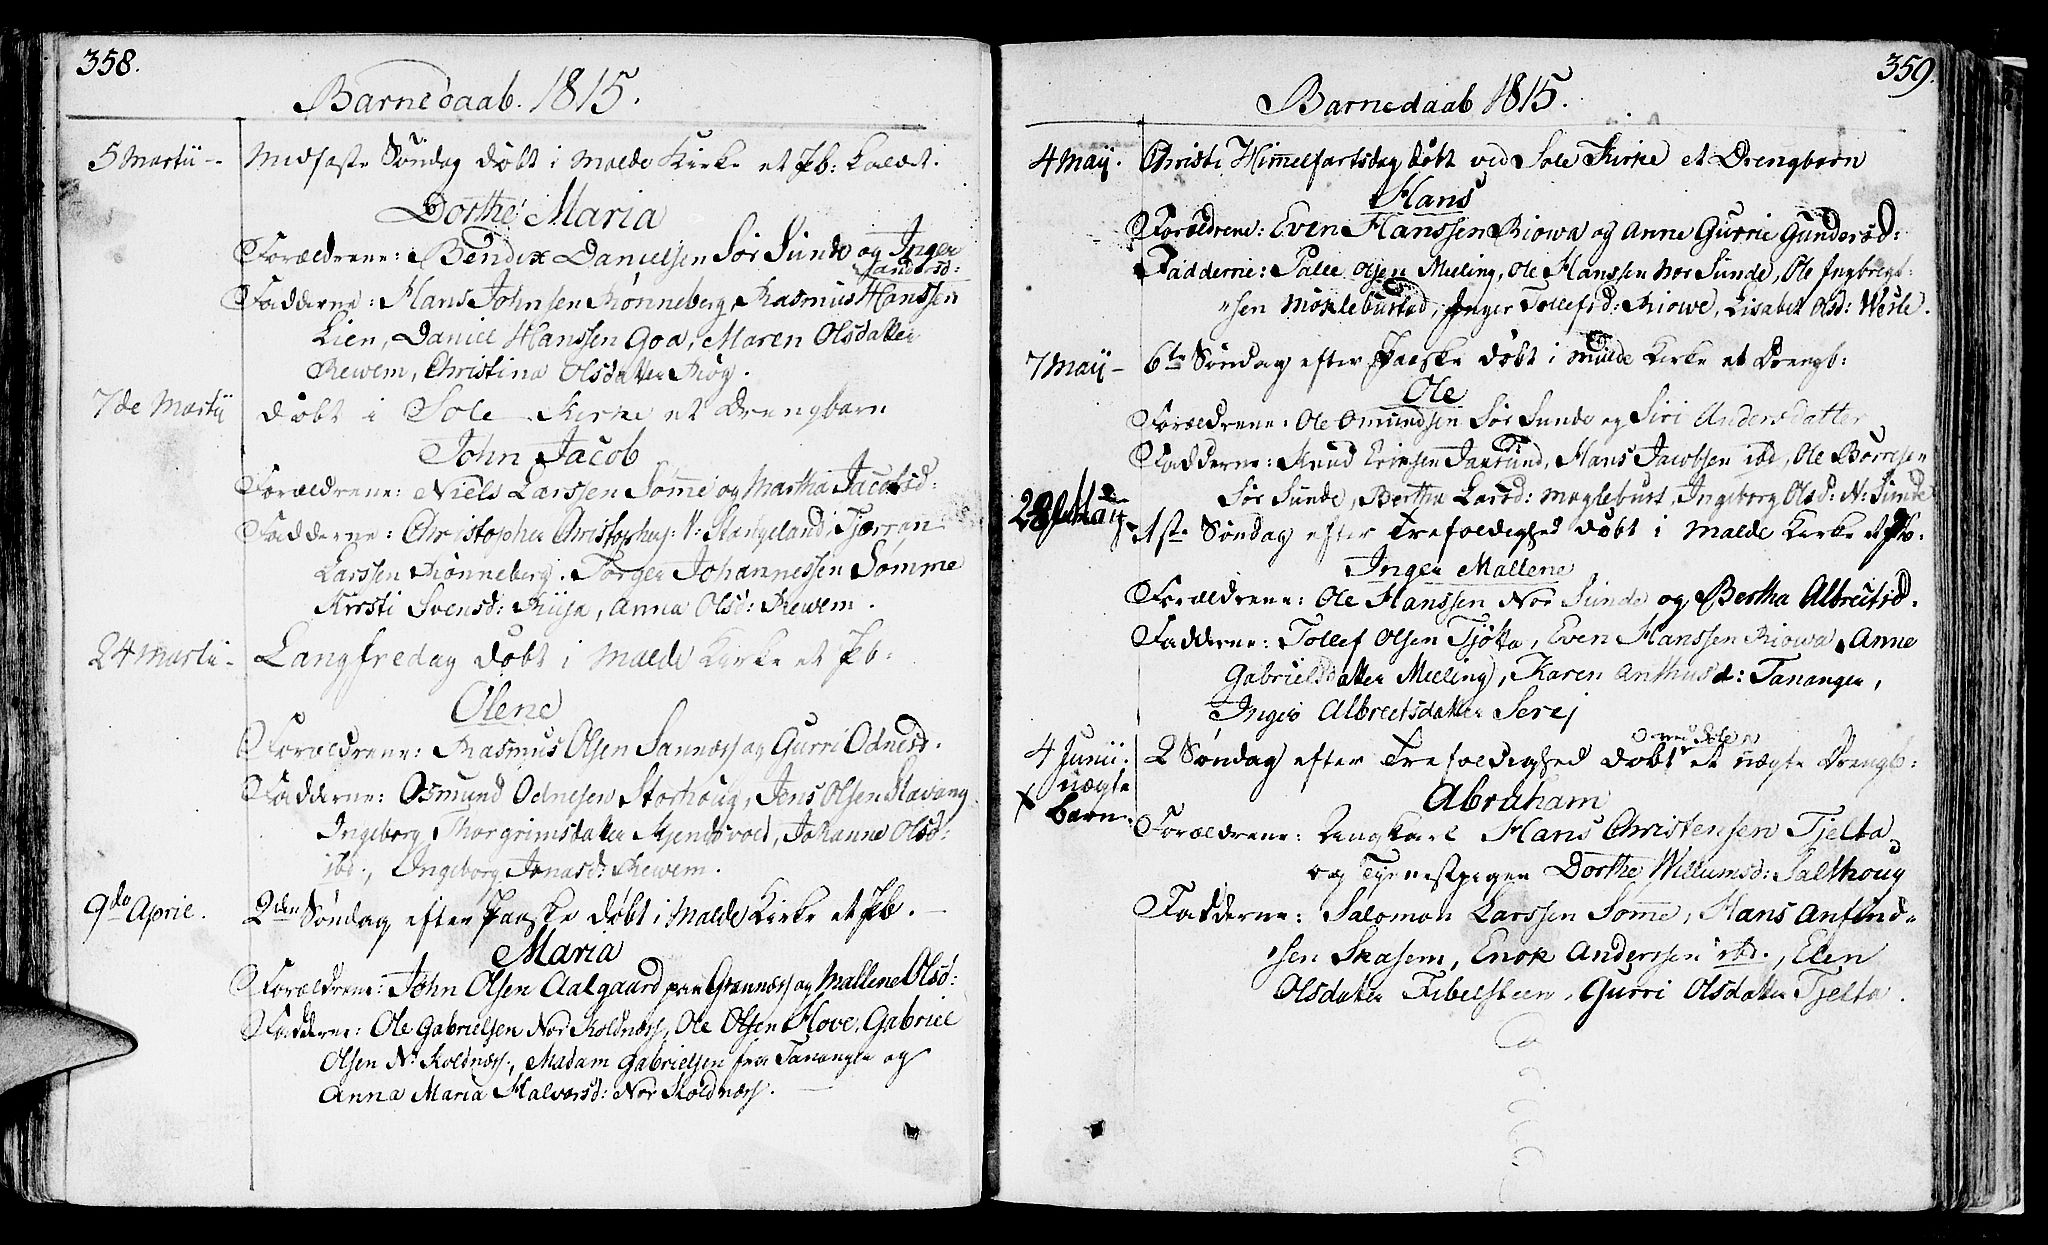 358.
Barnedaab. 1815.
5 Martii - Midfaste Søndag døbt i Malde Kirke et Pb: kaldet.
Dorthe Maria
Forældrene: Bendix Danielsen Sør Sunde og Inger
Sandersd:
Fadderne: Hans Johnsen Rønneberg, Rasmus Hanssen
Lien, Daniel Hanssen Goa, Maren Olsdatter
Rewem, Christina Olsdatter Røg.
7de Martii døbt i Sole Kirke et Drengbarn
John Jacob
Forældrene: Niels Larssen Somme og Martha Jacobsd:
Fadderne: Christopher Christophers: N: Stangeland, Tjerran
Larssen Rønneberg. Torger Johannessen Sømme
Kirsti Svensd: Risa, Anna Olsd: Rewem.
24 Martii - Langfredag døbt i Malde Kirke et Pb:
Olene
Forældrene: Rasmus Olsen Sannæss og Gurri Odnesd.
Fadderne: Osmund Odnesen Storhoug, Jens Olsen Stavang
Ingeborg Thorgrimsdatter Kjendsvold, Johanne Olsd:
ibd., Ingeborg Jonasd: Rewem.
9de April. 2den Søndag efter Paaske døbt i Malde Kirke et Pb. -
Maria
Forældrene: John Olsen Aalgaard paa Grannæss og Mallene Olsd:
Fadderne: Ole Gabrielsen Nor Koldnæss, Ole Olsen Hove, Gabriel
Olsen Nr Koldnæss., Madam Gabrielsen fra Tananger og
Anna Maria Halvorsd: Nor Koldnæss.
359.
Barnedaab 1815.
4 Maij. Christi Himmelfartsdag døbt ved Sole Kirke et Drengbarn
Hans
Forældrene: Even Hanssen Riowa og Anne Gurrie Gundersd:
Fadderne: Palle Olsen Meeling, Ole Hanssen Nor Sunde, Ole Ingbregt-
sen Möklebustad, Inger Tollefsd: Riowe, Lisabet Olsd:
7 Maij - 6te Søndag efter Paaske døbt i Malde Kirke et Drengb:
Ole
Forældrene: Ole Omundsen Sør Sunde og Siri Andersdatter
Fadderne: Knud Erichsen Jaasund, Hans Jacobsen ibd, Ole Børresen
Sør Sunde, Bertha Larsd: Magleburst. Ingeborg Olsd: N: Sunde
28 Maij - 1ste Søndag efter Trefoldighed døbt i Malde Kirke et Pb.
Inger Mallene
Forældrene: Ole Hanssen Nor Sunde og Bertha Albreitsd.
Fadderne: Tollef Olsen Tjøtta, Even Hanssen Riowa, Anne
Gabrielsdatter Meeling, Karen Anthusd: Tananger,
Inger Albreetsdatter
4 Junii. 2 Søndag efter Trefoldighed døbt ved Sole et uægte Drengb:
uægte
x Barn.
Abraham
Forældrene: Ungkarl Hans Christensen Tjelta
og Tjenestpigen Dorthe Willumsd: Salthoug
Fadderne: Salomon Larssen Somme, Hans Anfind-
sen Skasem, Enok Anderssen ibd., Elen
Olsdatter Fibelsteen, Gurri Olsdatter Tjelta.